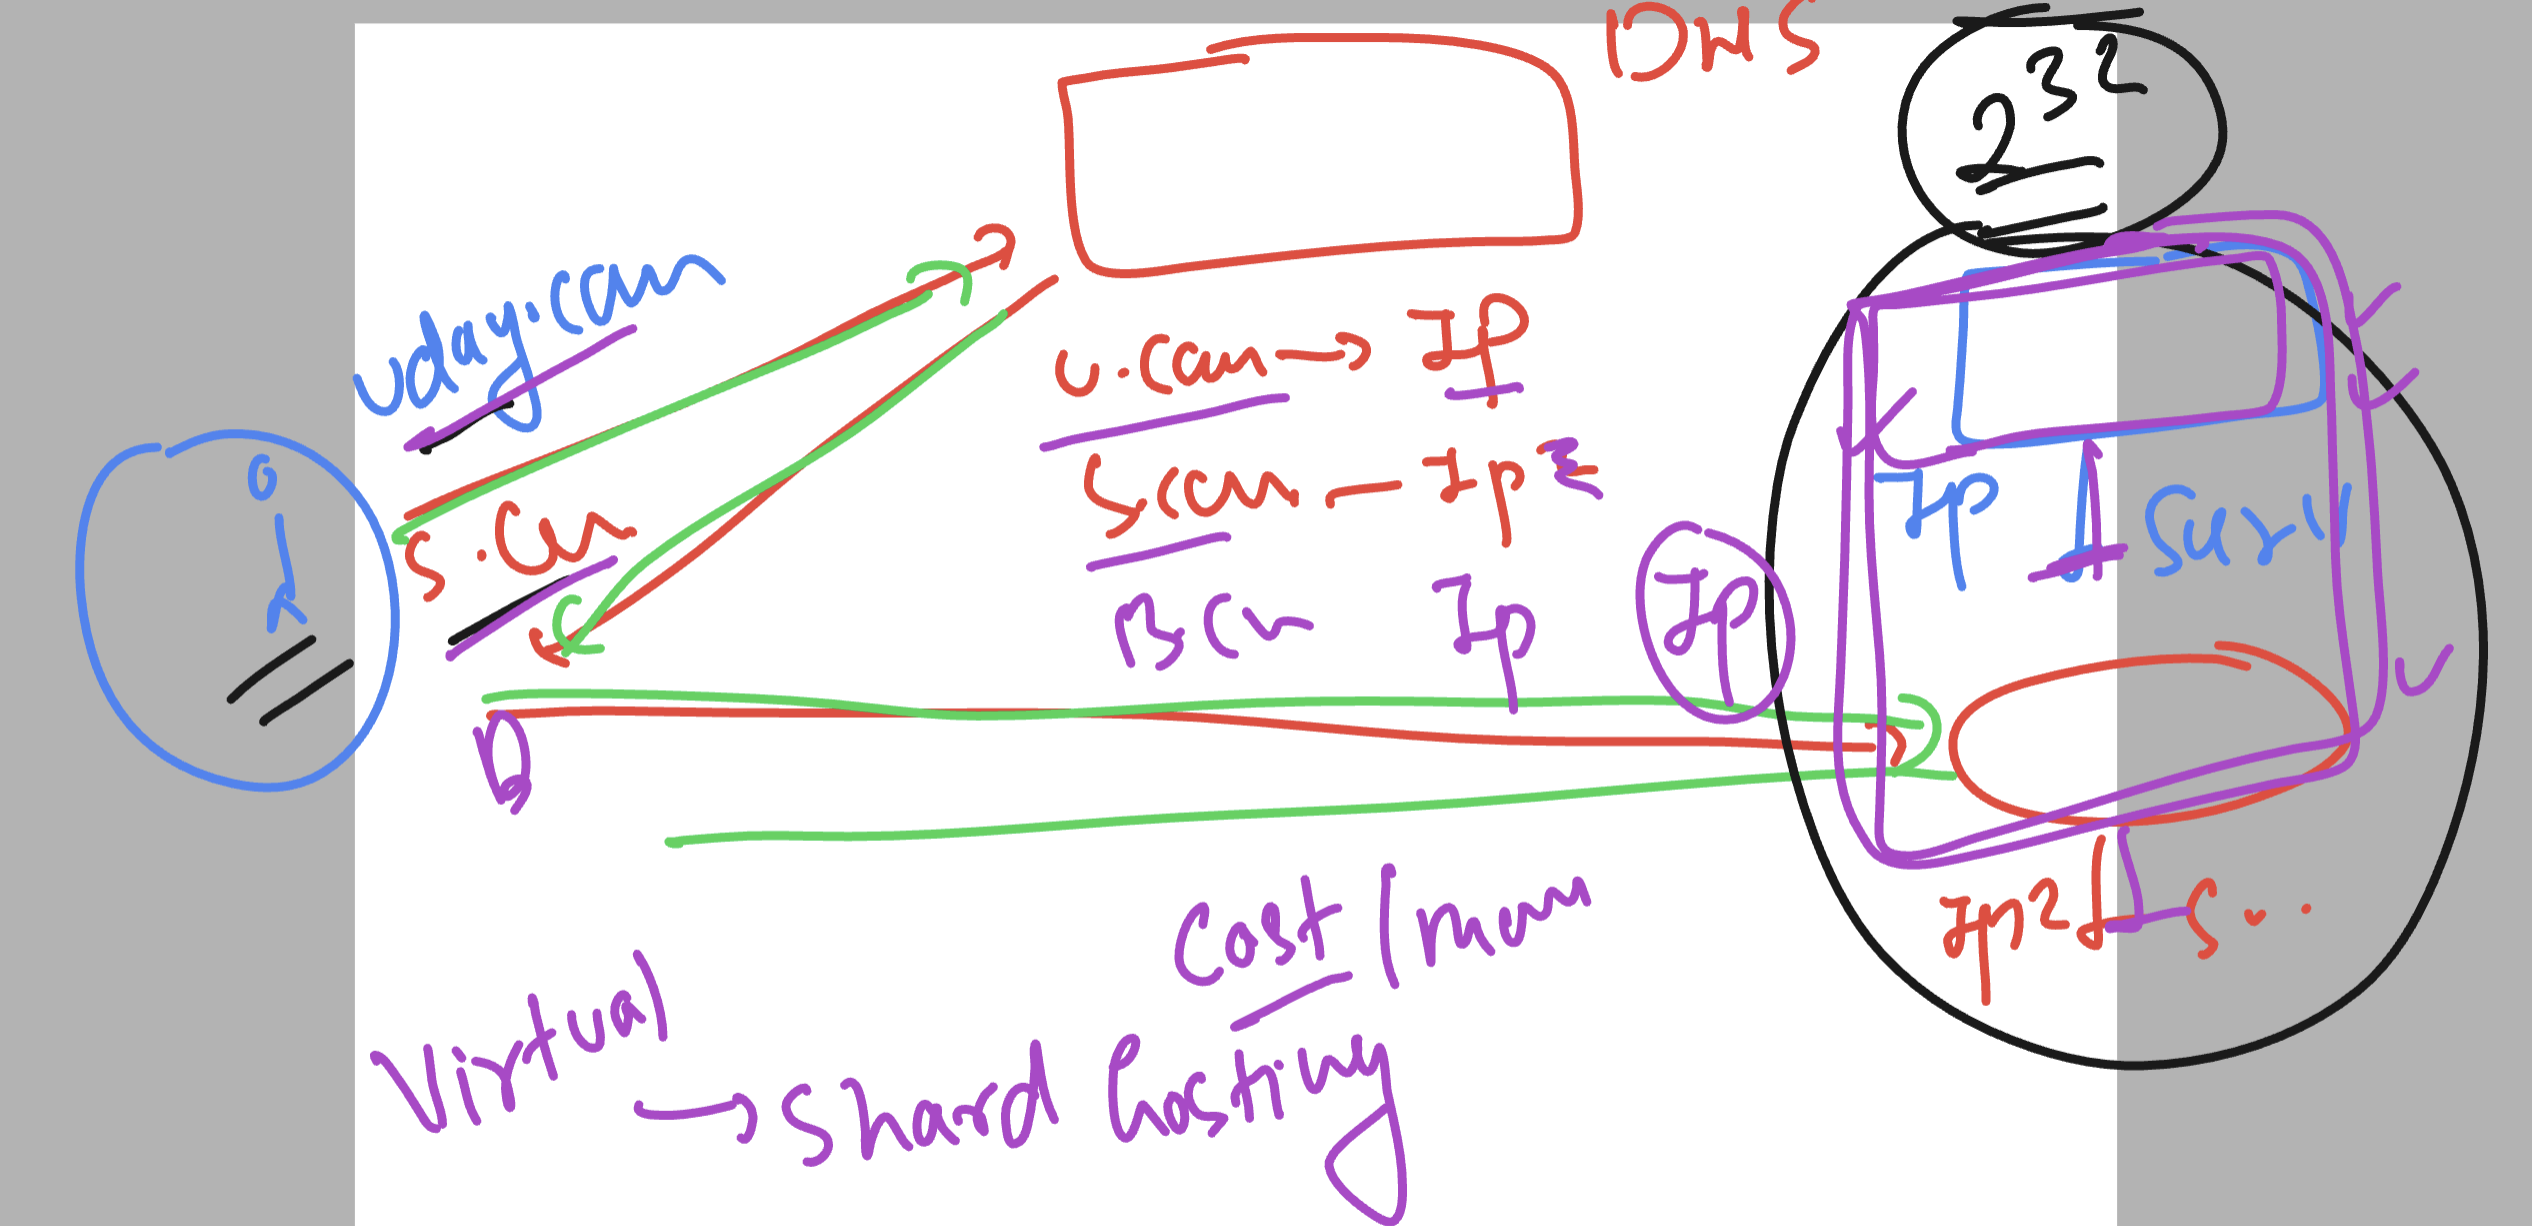 DNS
2^32
uday.com
u.com → IP
S.com
S com — Ip
B com Ip
IP
IP
Ip2
S..
Cost / mem
Virtual
→ Shard hosting